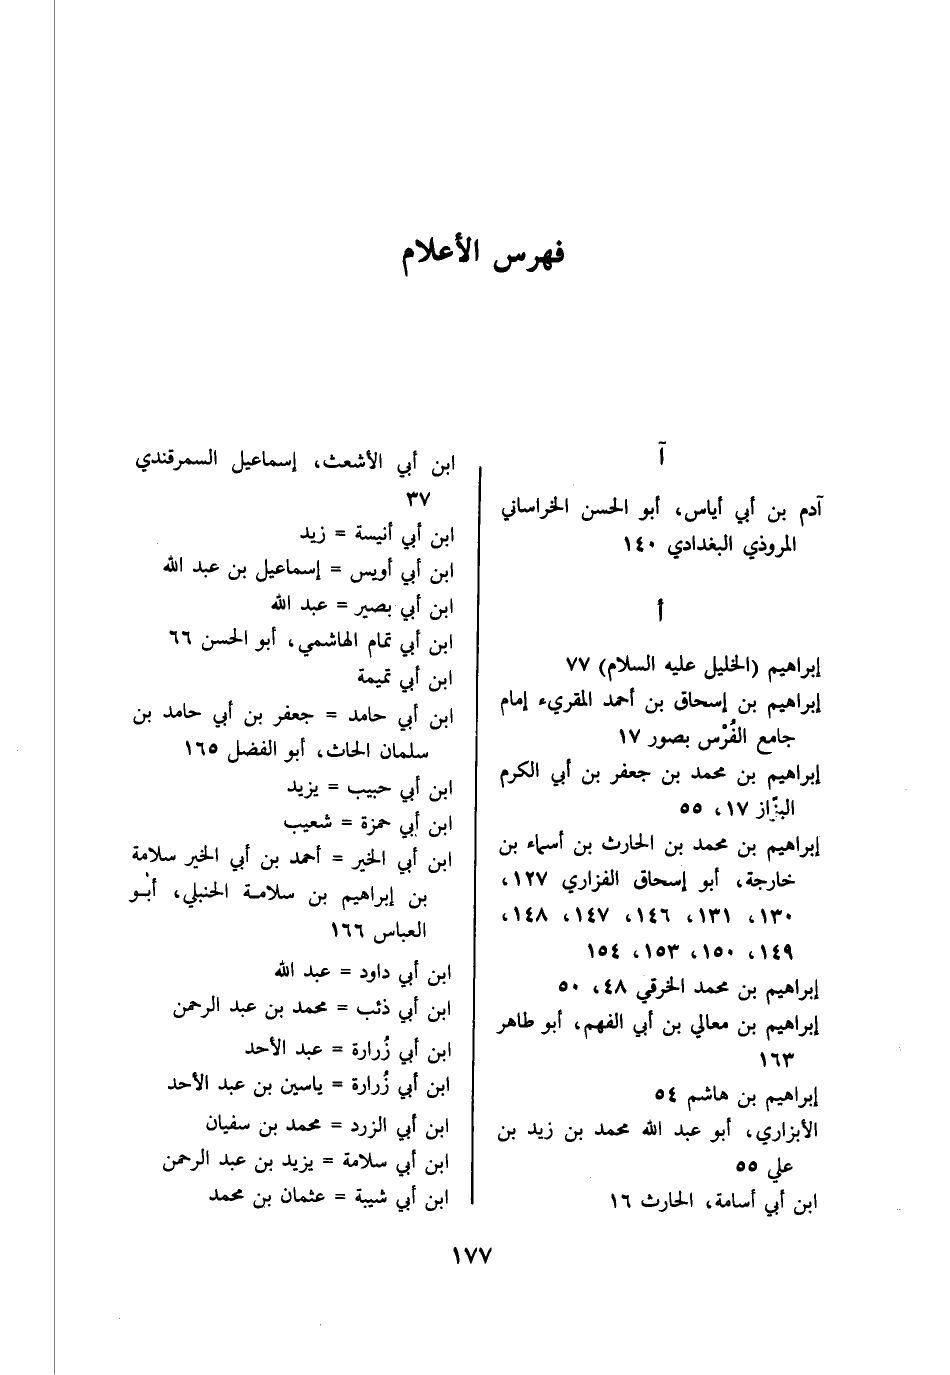 فهرس الأعلام
آ
آدم بن أبي أياس، أبو الحسن الخراساني
المروذي البغدادي ١٤٠
أ
إبراهيم (الخليل عليه السلام) ٧٧
إبراهيم بن إسحاق بن أحمد المقريء إمام
جامع الفُرْس بصور ١٧
إبراهيم بن محمد بن جعفر بن أبي الكرم
البزّاز ١٧، ٥٥
إبراهيم بن محمد بن الحارث بن أسماء بن
خارجة، أبو إسحاق الفزاري ١٢٧،
١٣٠، ١٣١، ١٤٦، ١٤٧، ١٤٨،
١٤٩، ١٥٠، ١٥٣، ١٥٤
إبراهيم بن محمد الخرقي ٤٨، ٥٠
إبراهيم بن معالي بن أبي الفهم، أبو طاهر
١٦٣
إبراهيم بن هاشم ٥٤
الأبزاري، أبو عبد الله محمد بن زيد بن
علي ٥٥
ابن أبي أسامة، الحارث ١٦
ابن أبي الأشعث، إسماعيل السمرقندي
٣٧
ابن أبي أنيسة = زيد
ابن أبي أويس = إسماعيل بن عبد الله
ابن أبي بصير = عبد الله
ابن أبي تمام الهاشمي، أبو الحسن ٦٦
ابن أبي تميمة
ابن أبي حامد = جعفر بن أبي حامد بن
سلمان الحاث، أبو الفضل ١٦٥
ابن أبي حبيب = يزيد
ابن أبي حمزة = شعيب
ابن أبي الخير = أحمد بن أبي الخير سلامة
بن إبراهيم بن سلامة الحنبلي، أبو
العباس ١٦٦
ابن أبي داود = عبد الله
ابن أبي ذئب = محمد بن عبد الرحمن
ابن أبي زُرارة = عبد الأحد
ابن أبي زُرارة = ياسين بن عبد الأحد
ابن أبي الزرد = محمد بن سفيان
ابن أبي سلامة = يزيد بن عبد الرحمن
ابن أبي شيبة = عثمان بن محمد
١٧٧